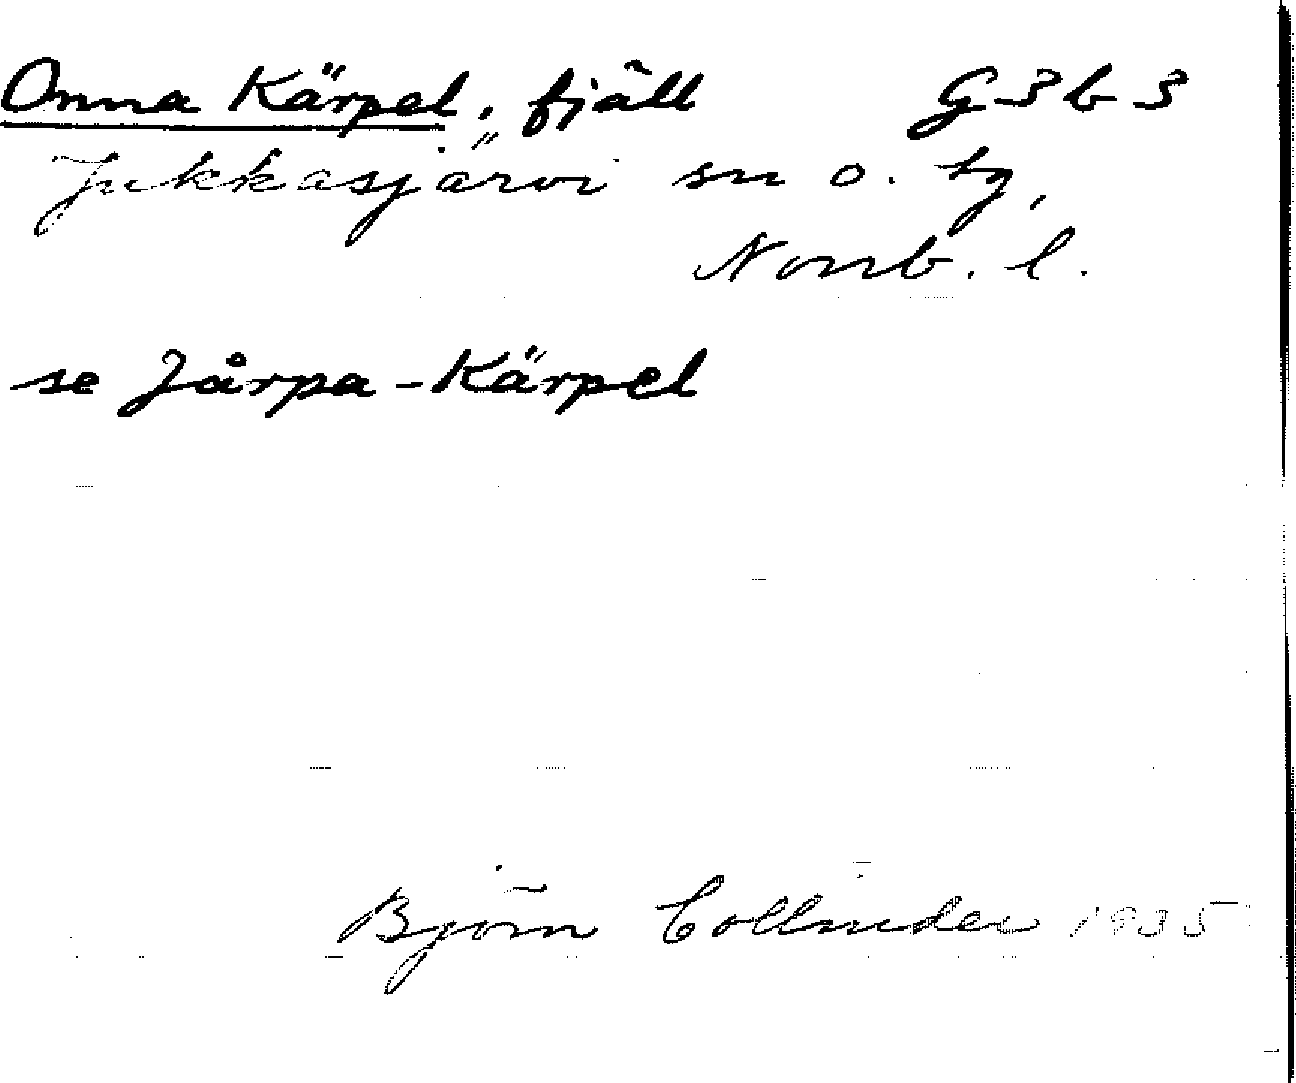 Onna Kärpel, fjäll G 3 b 3
Jukkasjärvi sn o. tg,
Norrb. l.
se Jårpa-Kärpel
Björn Collinder 1935